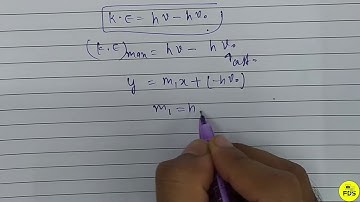 K.E = hν - hν₀
(K.E)max = hν - hν₀
y = m₁x + (-hν₀)
m₁ = h
FDS